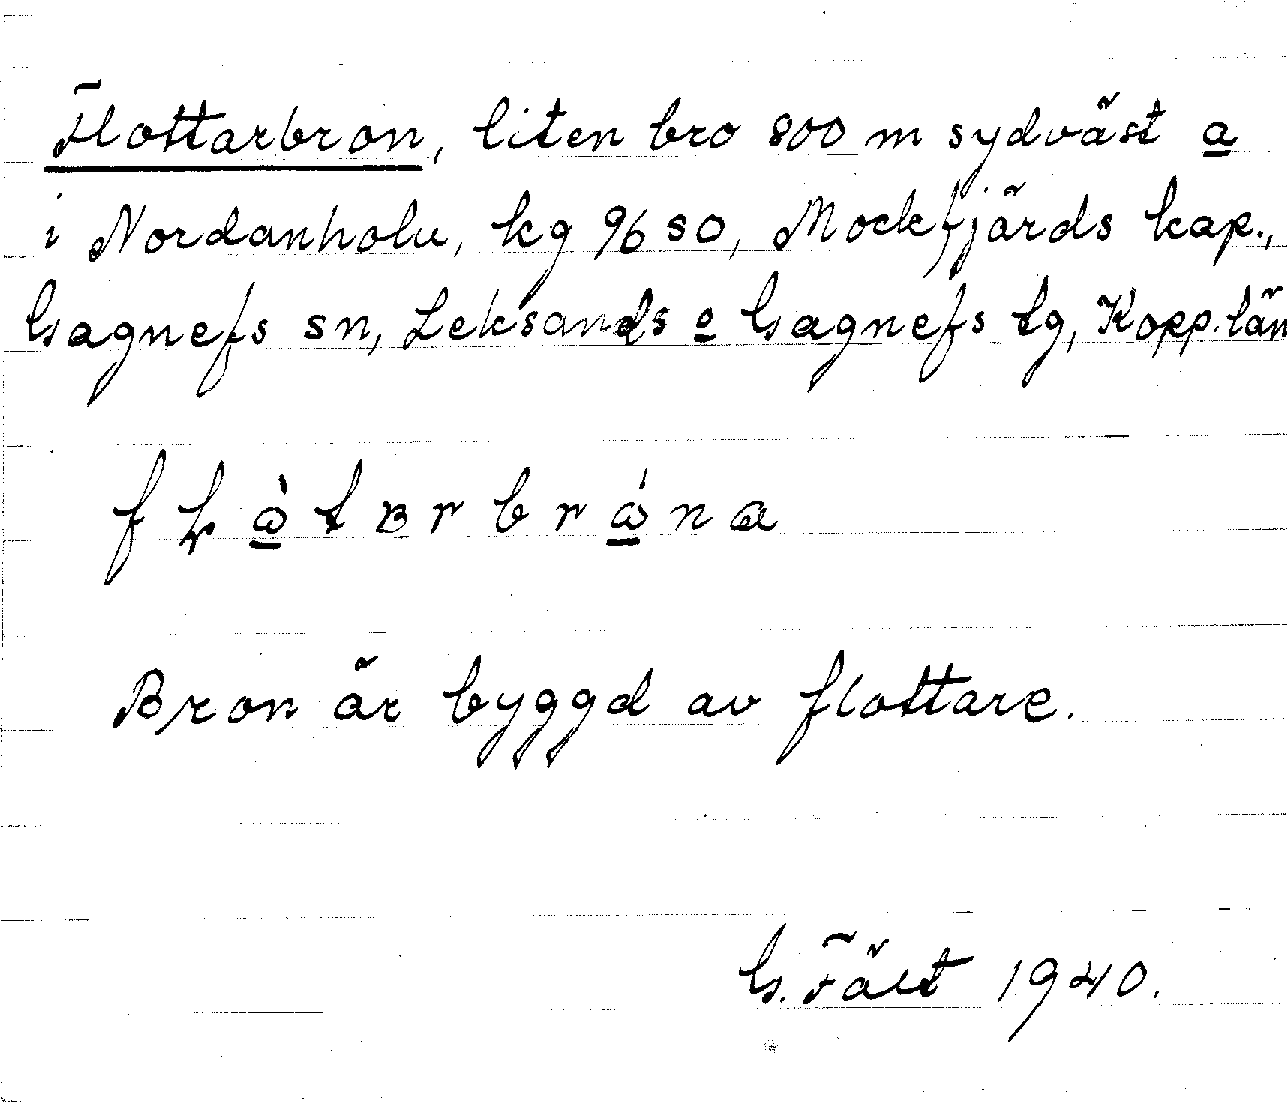 Flottarbron, liten bro 800 m sydväst a
i Nordanholn, kg 96 SO, Mockfjärds kap.,
Gagnefs sn, Leksands o Gagnefs tg, Kopp. län
Bron är byggd av flottare.
G. Fält 1940.